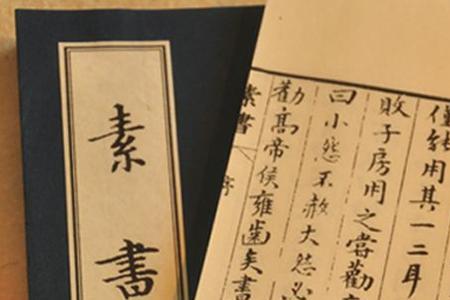 素書
僅能用其一二耳
敗子房用之嘗勸
曰小怨不赦大怨必
勸高帝侯雍齒矣書
素書 序